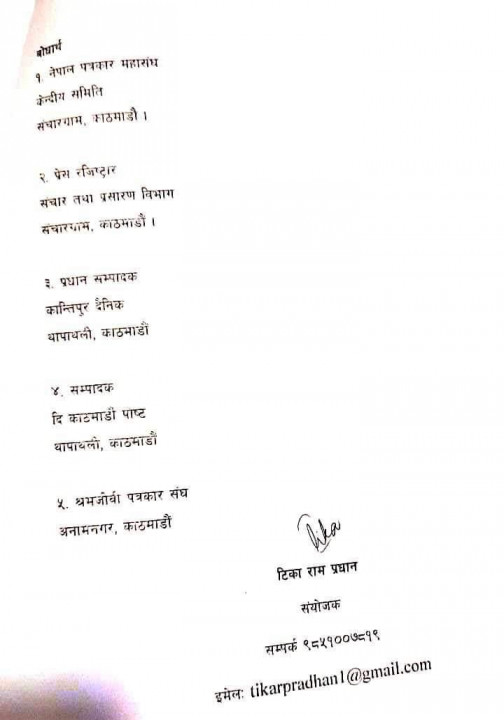 बोधार्थ
१. नेपाल पत्रकार महासंघ
केन्दीय समिति
संचारग्राम, काठमाडौं ।
२. प्रेस रजिष्ट्रार
संचार तथा प्रसारण विभाग
संचारग्राम, काठमाडौं ।
३. प्रधान सम्पादक
कान्तिपुर दैनिक
थापाथली, काठमाडौं
४. सम्पादक
दि काठमाडौ पोष्ट
थापाथली, काठमाडौं
५. श्रमजीवी पत्रकार संघ
अनामनगर, काठमाडौं
Tika
टिका राम प्रधान
संयोजक
सम्पर्क ९८५१००७८१९
इमेलः tikarpradhan1@gmail.com